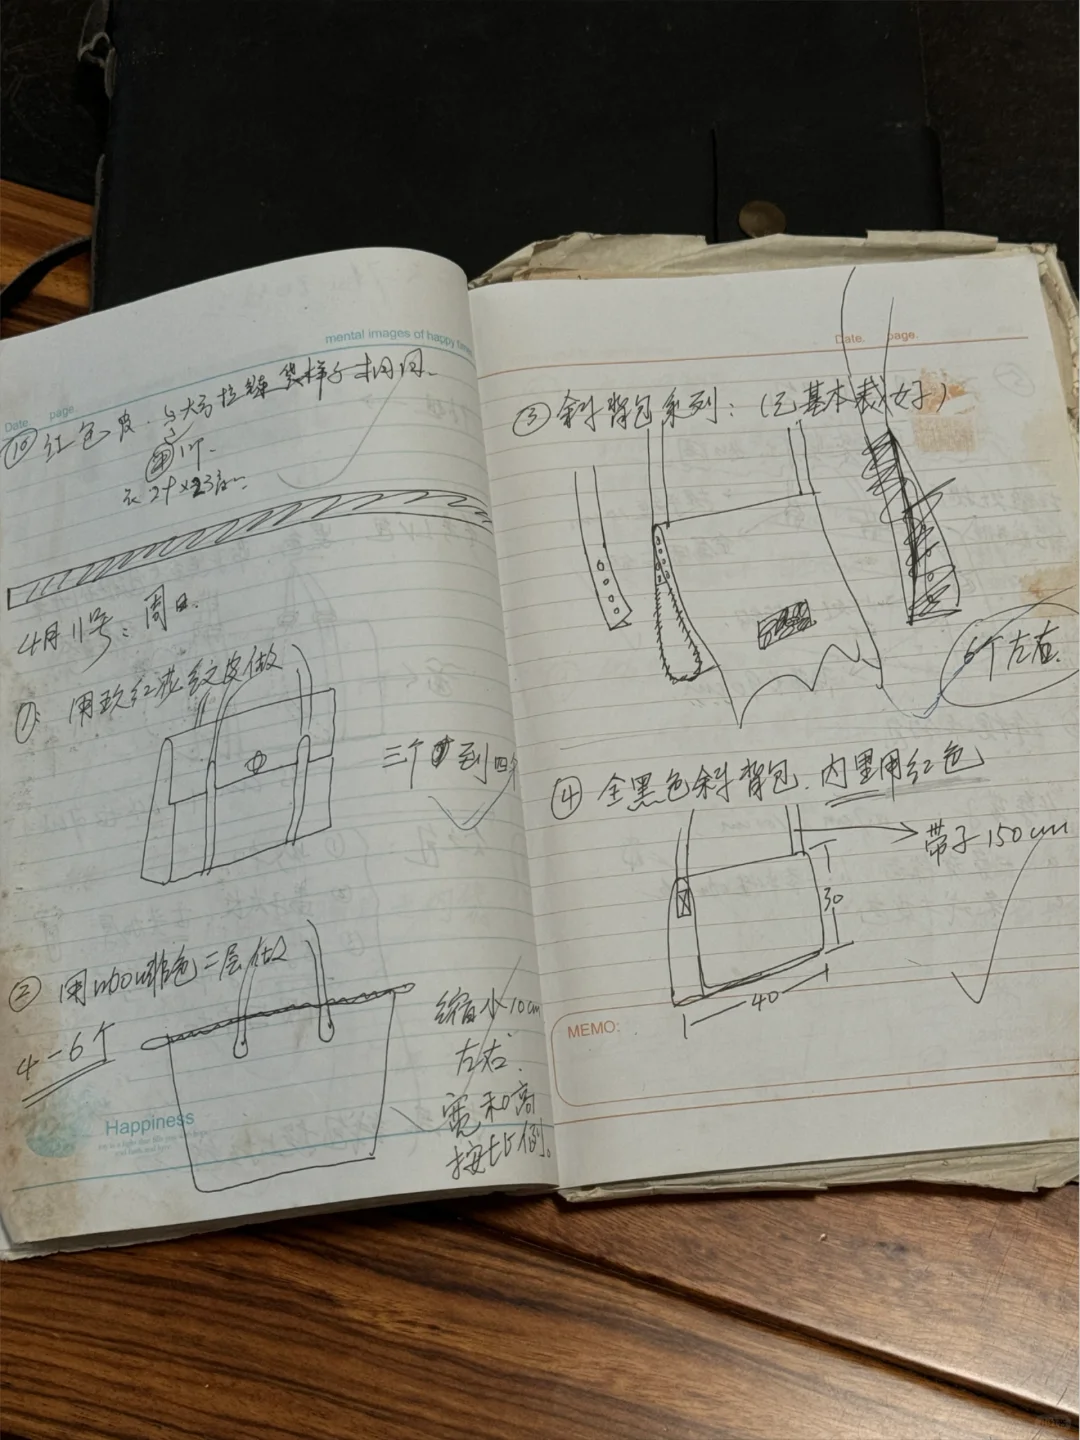 mental images of happy
Date. page
⑩ 红色皮.与大号拉链袋样子相同.
4月11号:周日.
①: 用玫红花纹皮做
三个到四个
② 用 色二层做
4-6个
缩小10cm
左右.
宽和高
按比例。
Happiness
Date. page.
③ 斜背包系列:(已基本裁好)
6个左右.
④ 全黑色斜背包.内里用红色
带子150cm
30
40
MEMO: